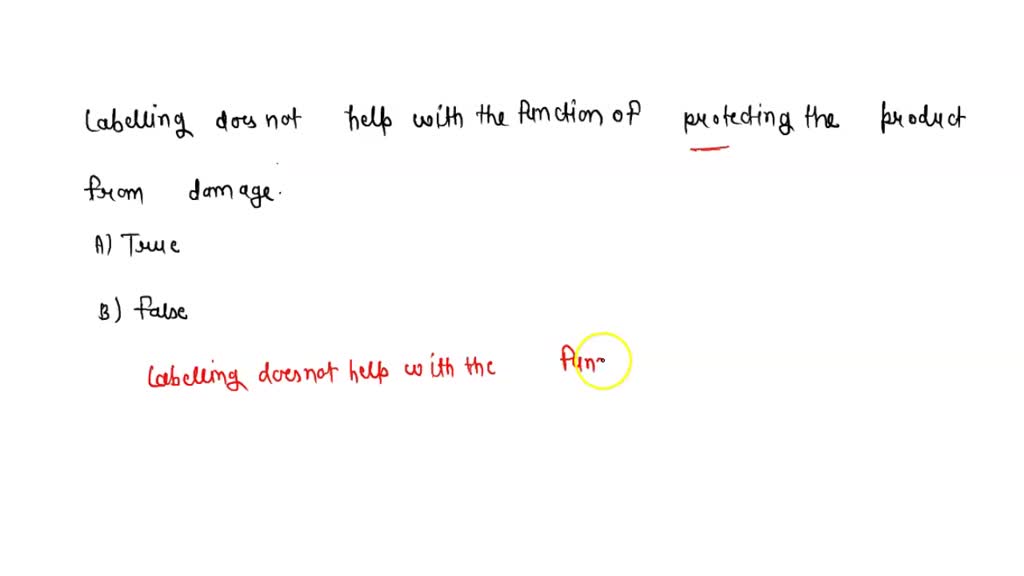 Labelling does not help with the function of protecting the product
from damage.
A) True
B) false
Labelling does not help with the fun